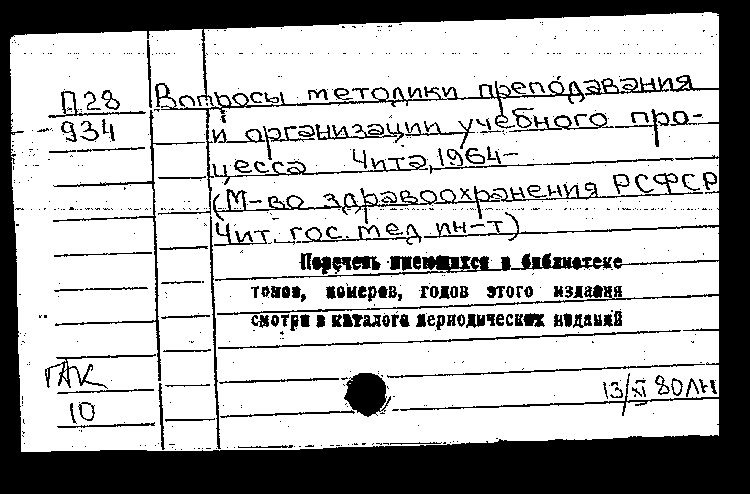 П28 Вопросы методики преподавания
934 и организации учебного про-
цесса Чита, 1964-
(М-во здравоохранения РСФСР
Чит. гос. мед ин-т)
Перечень имеющихся в библиотеке
томов, номеров, годов этого издания
смотри в каталоге периодических изданий
ГАК
10
13/XI 80 ЛН